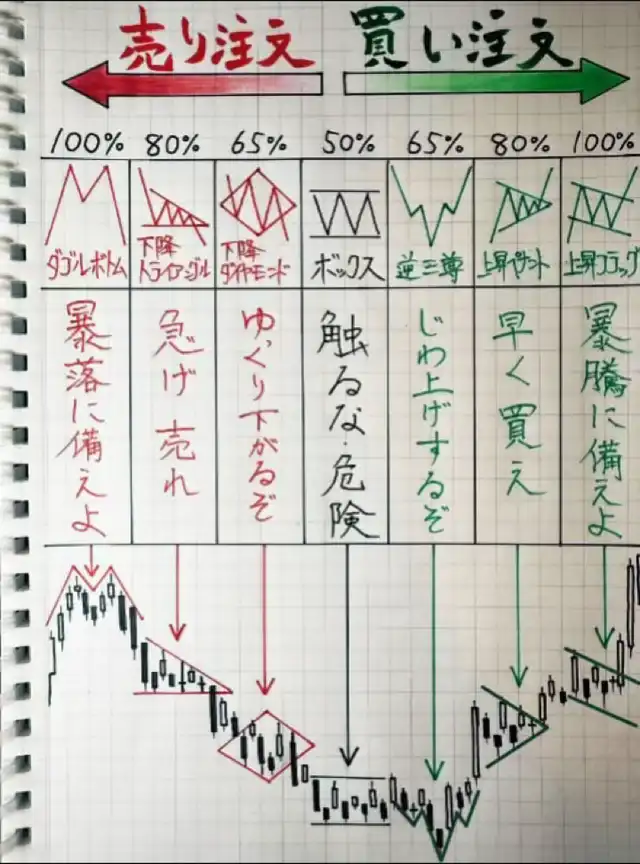 売り注文 買い注文
100% 80% 65% 50% 65% 80% 100%
ダブルボトム
下降
トライアングル
下降
ダイヤモンド
ボックス
逆三尊
上昇ペナント
上昇フラッグ
暴落に備えよ
急げ売れ
ゆっくり下がるぞ
触るな危険
じわ上げするぞ
早く買え
暴騰に備えよ